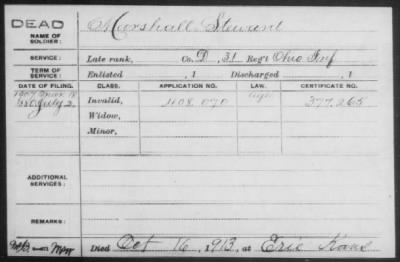 DEAD
NAME OF SOLDIER:
Marshall Stewart
SERVICE:
Late rank, Co. D, 31 Reg't Ohio Inf
TERM OF SERVICE:
Enlisted , 1 Discharged , 1
DATE OF FILING. CLASS. APPLICATION NO. LAW. CERTIFICATE NO.
1880 July 2 Invalid, 408.070 377.265
Widow,
Minor,
ADDITIONAL SERVICES:
REMARKS:
Died Oct 16, 1913, at Erie Kans